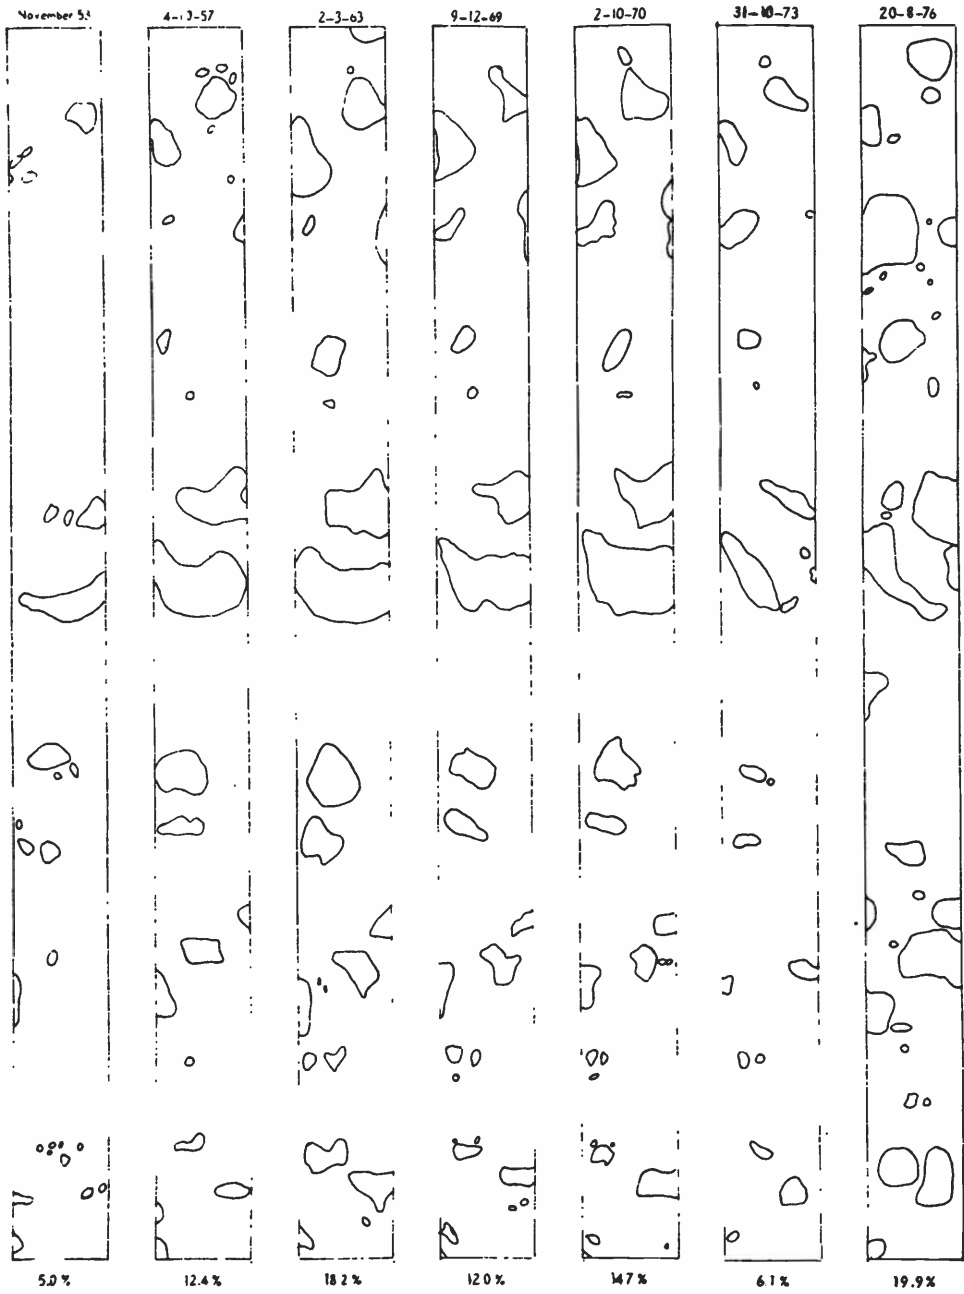 November 53 4-13-57 2-3-63 9-12-69 2-10-70 31-10-73 20-8-76
5.0% 12.4% 18.2% 12.0% 14.7% 6.1% 19.9%